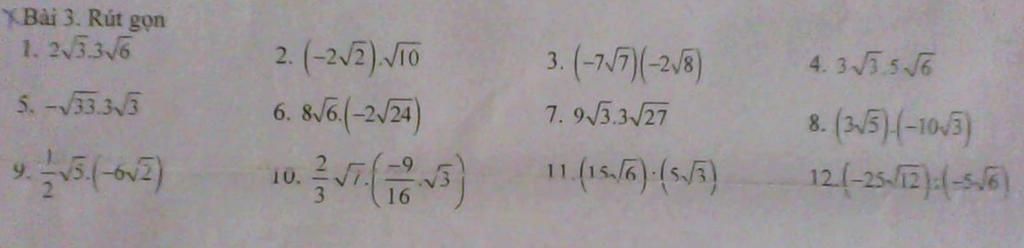 Bài 3. Rút gọn
1. 2√3.3√6 2. (−2√2).√10 3. (−7√7)(−2√8) 4. 3√3.5√6
5. −√33.3√3 6. 8√6.(−2√24) 7. 9√3.3√27 8. (3√5).(−10√3)
9. 1/2 √5.(−6√2) 10. 2/3 √7.(−9/16 .√3) 11.(15√6):(5√3) 12.(−25√12):(−5√6)